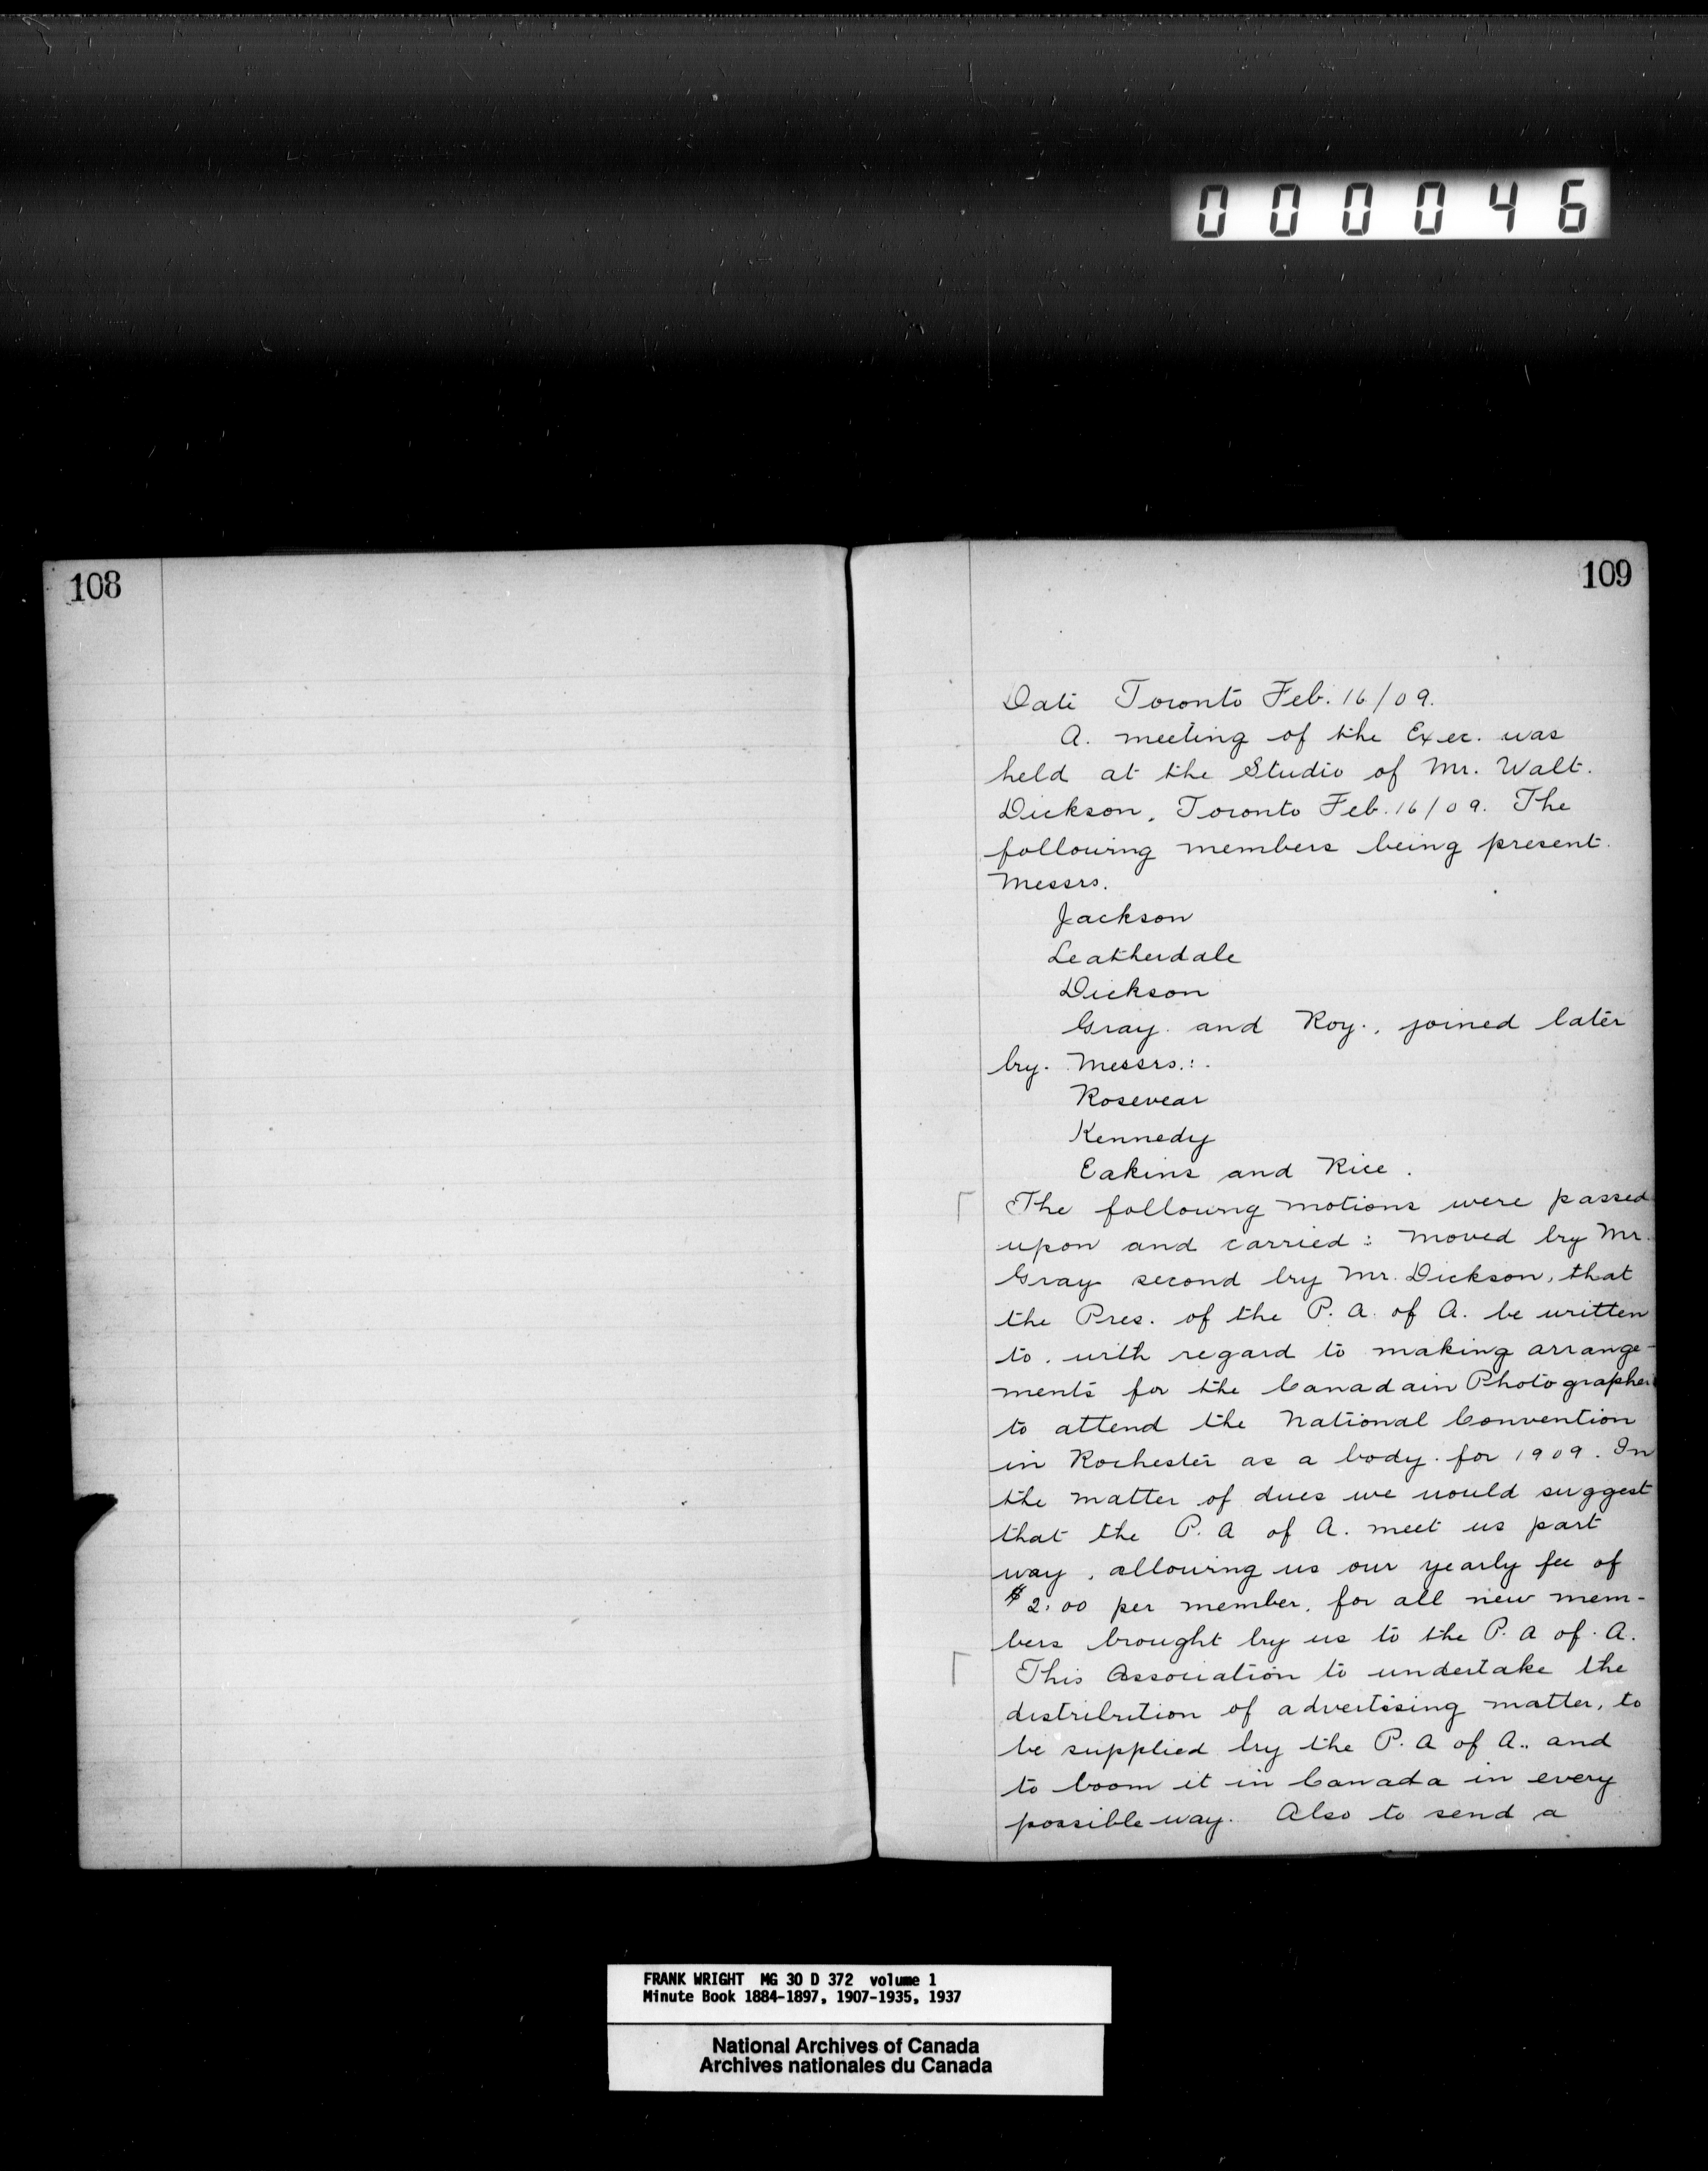 000046
108
109
Date Toronto Feb. 16/09.
A. meeting of the Exec. was
held at the Studio of Mr. Walt.
Dickson, Toronto Feb. 16/09. The
following members being present.
Messrs.
Jackson
Leatherdale
Dickson
Gray. and Roy., joined later
by. Messrs.:.
Rosevear
Kennedy
Eakins and Rice.
The following motions were passed
upon and carried: moved by Mr.
Gray second by Mr. Dickson, that
the Pres. of the P. A. of A. be written
to. with regard to making arrange-
ments for the Canadain Photographers
to attend the National Convention
in Rochester as a body. for 1909. In
the matter of dues we would suggest
that the P. A of A. meet us part
way, allowing us our yearly fee of
$2.00 per member, for all new mem-
bers brought by us to the P. A of. A.
This Association to undertake the
distribution of advertising matter, to
be supplied by the P. A of A.. and
to boom it in Canada in every
possible way. Also to send a
FRANK WRIGHT MG 30 D 372 volume 1
Minute Book 1884-1897, 1907-1935, 1937
National Archives of Canada
Archives nationales du Canada